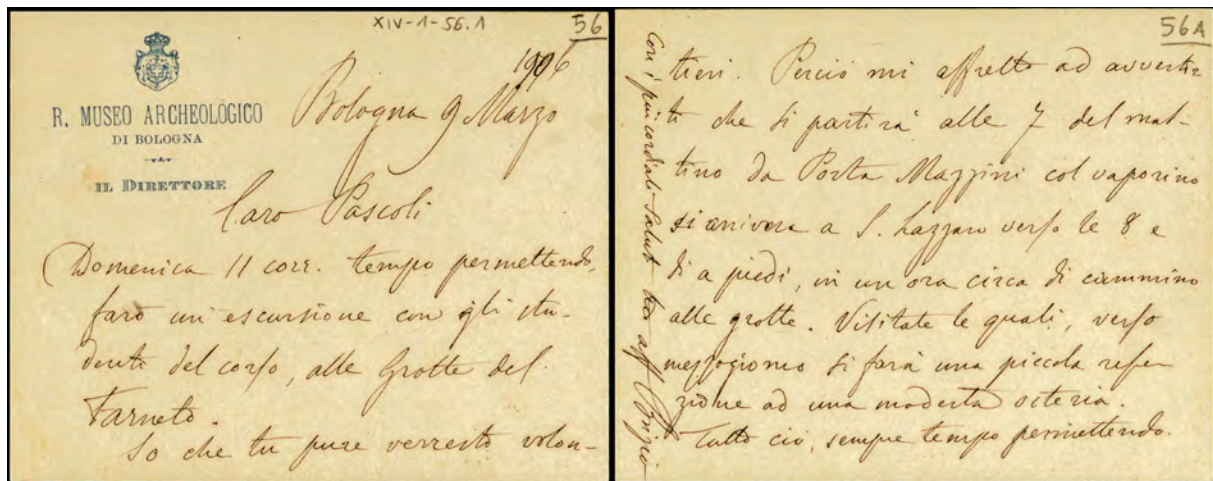 XIV-1-56.1
56
R. MUSEO ARCHEOLOGICO
DI BOLOGNA
IL DIRETTORE
1906
Bologna 9 Marzo
Caro Pascoli
Domenica 11 corr. tempo permettendo,
farò un'escursione con gli stu-
denti del corso, alle Grotte del
Farneto.
So che tu pure verresti volon-
56A
tieri. Perciò mi affretto ad avvertir
ti che si partirà alle 7 del mat-
tino da Porta Mazzini col vaporino
si arriverà a S. Lazzaro verso le 8 e
di a piedi, in un ora circa di cammino
alle grotte. Visitate le quali, verso
mezzogiorno si farà una piccola refe
zione ad una modesta osteria.
Tutto ciò, sempre tempo permettendo.
Coi più cordiali saluti tuo aff Brizio